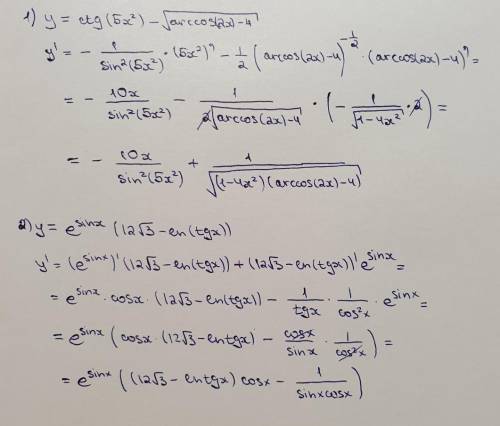 1) y = ctg(5x²) - √(arccos(2x)-4)
y' = - 1/sin²(5x²) · (5x²)' - 1/2 (arccos(2x)-4)^(-1/2) · (arccos(2x)-4)' =
= - 10x/sin²(5x²) - 1/(2√(arccos(2x)-4)) · (- 1/√(1-4x²) · 2) =
= - 10x/sin²(5x²) + 1/√((1-4x²)(arccos(2x)-4))
2) y = e^sinx (12√3 - ln(tgx))
y' = (e^sinx)' (12√3 - ln(tgx)) + (12√3 - ln(tgx))' e^sinx =
= e^sinx · cosx · (12√3 - ln(tgx)) - 1/tgx · 1/cos²x · e^sinx =
= e^sinx (cosx · (12√3 - lntgx) - cosx/sinx · 1/cos²x) =
= e^sinx ((12√3 - lntgx) cosx - 1/sinxcosx)